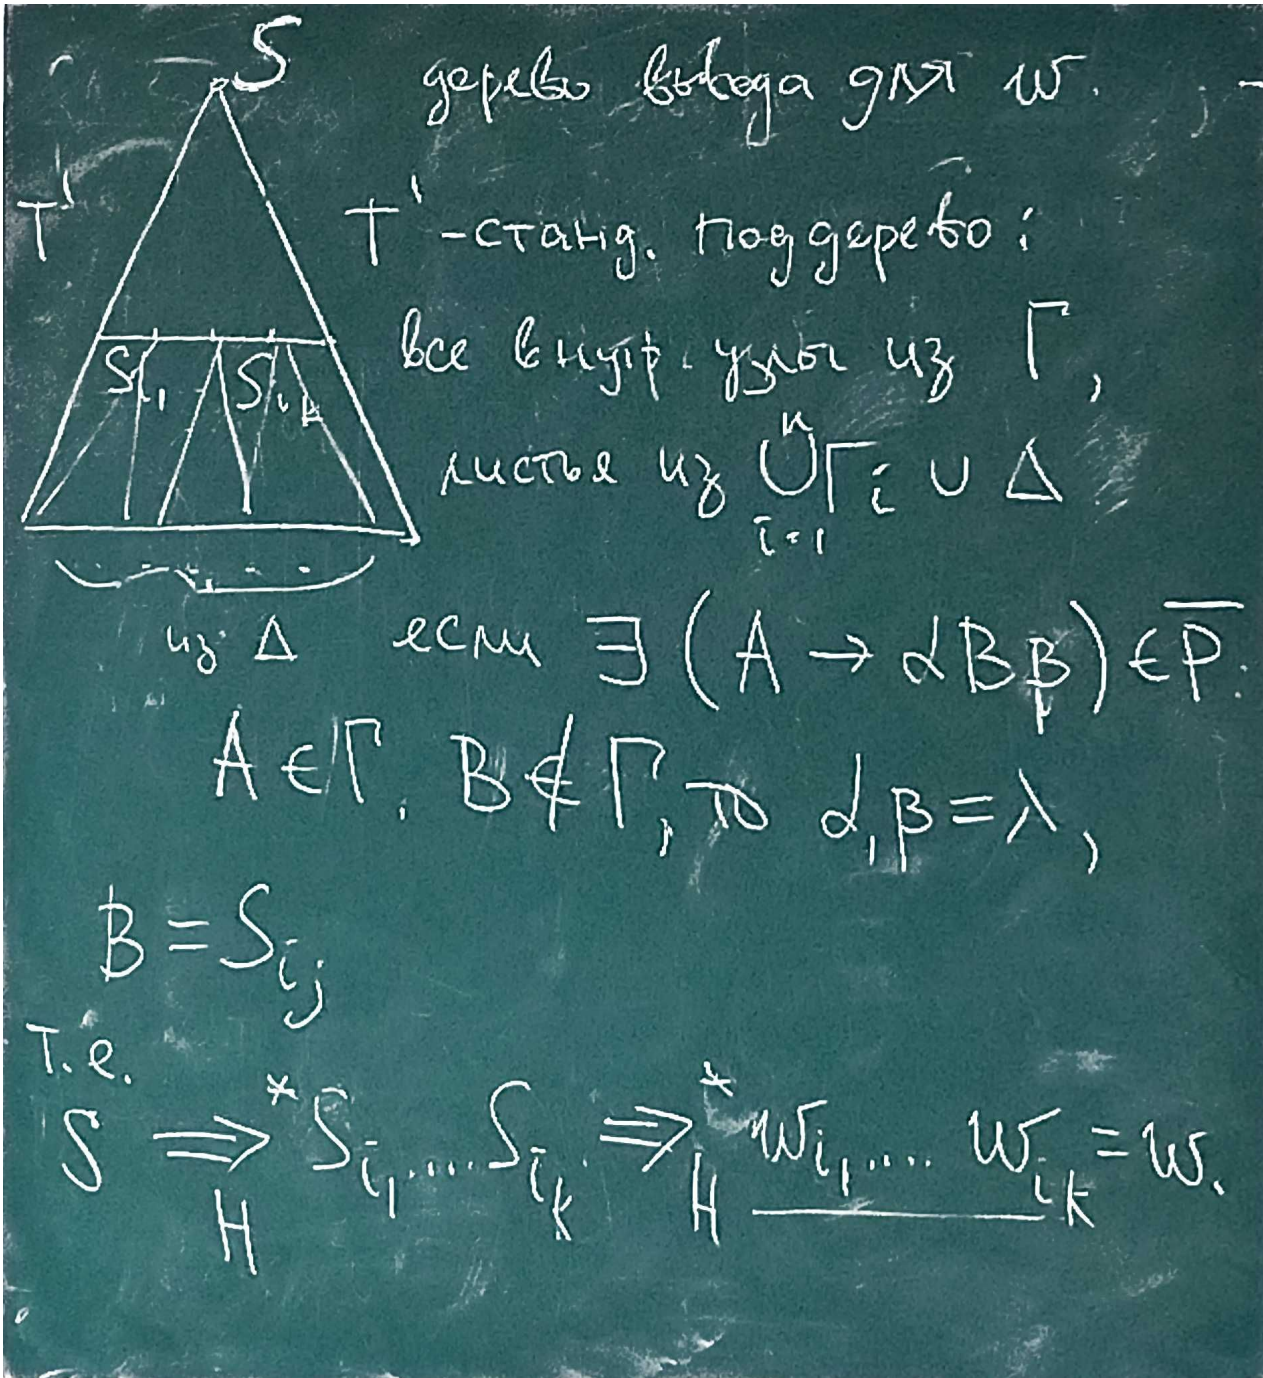 S дерево вывода для w.
T' T'-станд. поддерево:
все внутр. узлы из Γ,
S_{i_1} S_{i_k} листья из ⋃_{i=1}^{n} Γ_i ∪ Δ
из Δ если ∃ (A → αBβ) ∈ P̅.
A ∈ Γ, B ∉ Γ, то α, β = λ,
B = S_{i_j}
т.е.
S ⇒*_H S_{i_1} .... S_{i_k} ⇒*_H w_{i_1} .... w_{i_k} = w.